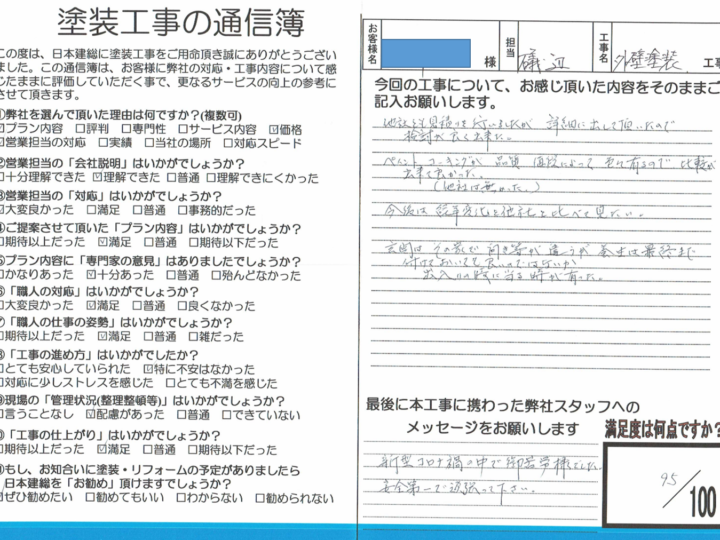 塗装工事の通信簿
この度は、日本建総に塗装工事をご用命頂き誠にありがとうござい
ました。この通信簿は、お客様に弊社の対応・工事内容について感
じたままに評価していただく事で、更なるサービスの向上の参考に
させて頂きます。
①弊社を選んで頂いた理由は何ですか?(複数可)
☑プラン内容 □評判 □専門性 □サービス内容 ☑価格
☑営業担当の対応 □実績 □当社の場所 □対応スピード
②営業担当の「会社説明」はいかがでしょうか?
□十分理解できた ☑理解できた □普通 □理解できにくかった
③営業担当の「対応」はいかがでしょうか?
☑大変良かった □満足 □普通 □事務的だった
④ご提案させて頂いた「プラン内容」はいかがでしょうか?
□期待以上だった ☑満足 □普通 □期待以下だった
⑤プラン内容に「専門家の意見」はありましたでしょうか?
□かなりあった ☑十分あった □普通 □殆んどなかった
⑥「職人の対応」はいかがでしょうか?
□大変良かった ☑満足 □普通 □良くなかった
⑦「職人の仕事の姿勢」はいかがでしょうか?
□期待以上だった ☑満足 □普通 □雑だった
⑧「工事の進め方」はいかがでしたか?
□とても安心していられた ☑特に不安はなかった
□対応に少しストレスを感じた □とても不満を感じた
⑨現場の「管理状況(整理整頓等)」はいかがでしょうか?
□言うことなし ☑配慮があった □普通 □できていない
「工事の仕上がり」はいかがでしょうか?
□期待以上だった ☑満足 □普通 □期待以下だった
もし、お知合いに塗装・リフォームの予定がありましたら
日本建総を「お勧め」頂けますでしょうか?
☑ぜひ勧めたい □勧めてもいい □わからない □勧められない
お客様名 様 担当 磯辺 工事名 外壁塗装 工事
今回の工事について、お感じ頂いた内容をそのままご
記入お願いします。
他社とも見積りを行いましたが 詳細に出して頂いたので
検討が良く出来た。
ペイント コーキングが 品質 値段によって 色々有るので 比較が
出来て良かった。
(他社は無かった。)
今後は 経年劣化を他社と比べて見たい。
玄関は
出入りの時に当る時が有った。
最後に本工事に携わった弊社スタッフへの
メッセージをお願いします
新型コロナ禍の中で御苦労様でした。
安全第一で頑張って下さい。
満足度は何点ですか?
95/100